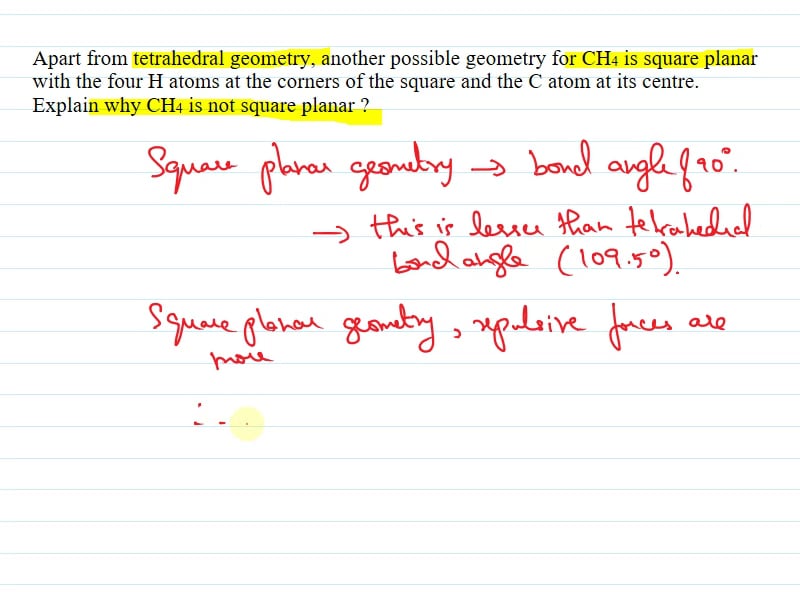 Apart from tetrahedral geometry, another possible geometry for CH4 is square planar
with the four H atoms at the corners of the square and the C atom at its centre.
Explain why CH4 is not square planar ?
Square planar geometry → bond angle of 90°.
→ this is lesser than tetrahedral
bond angle (109.5°).
Square planar geometry, repulsive forces are
more
∴ -